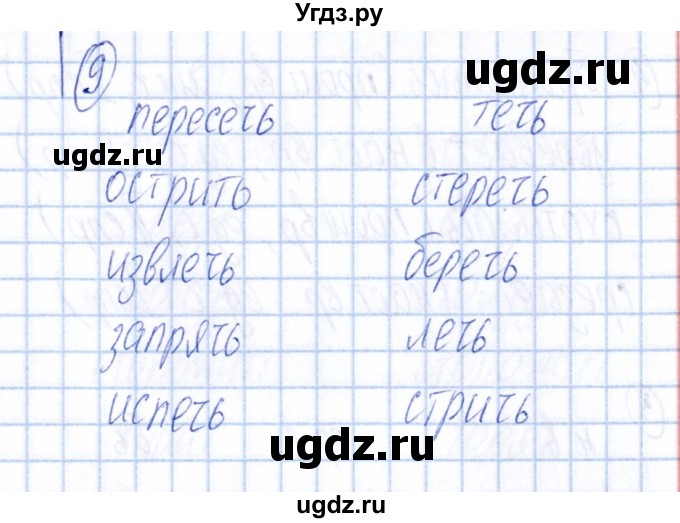 Угdз.ру
9
ugdz.ru
пересечь течь
ugdz.ru
острить стеречь
извлечь беречь
запрячь лечь
испечь стричь
ugdz.ru
ugdz.ru